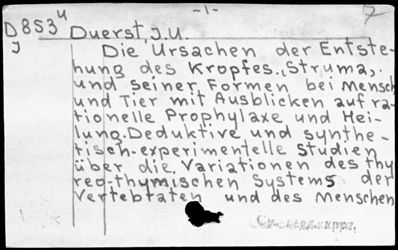 -1- 7
D853u Duerst, J.U.
J Die Ursachen der Entste-
hung des Kropfes. Struma,
und seiner Formen bei Mensch
und Tier mit Ausblicken auf ra-
tionelle Prophylaxe und Hei-
lung. Deduktive und synthe-
tisch-experimentelle Studien
über die Variationen des thy
reo-thymischen Systems der
Vertebtaten und des Menschen